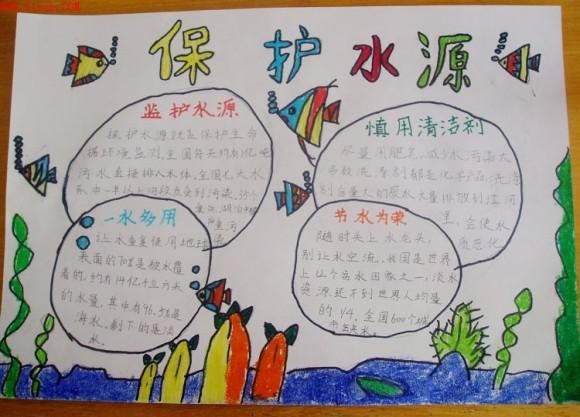 保护水源
监护水源
保护水源就是保护生命
据环境监测,全国每天约有1亿吨
污水直接排入水体。全国七大水
系中一半以上河段水质受到污染。35个
严重污
慎用清洁剂
尽量用肥皂,减少水污染大
多数洗
剂都是化学产品,洗涤
剂含量大的废水大量排放到江河
里,会使水
质恶化
一水多用
让水重复使用地球
表面的70%是被水覆
盖的,约有14亿千立方米
的水量,其中有96.5%是
海水。剩下的是淡
水。
节水为荣
随时关上水龙头,
别让水空流,我国是世界
上12个贫水国家之一,淡水
资源还不到世界人均量
的1/4。全国600个城
市缺水。